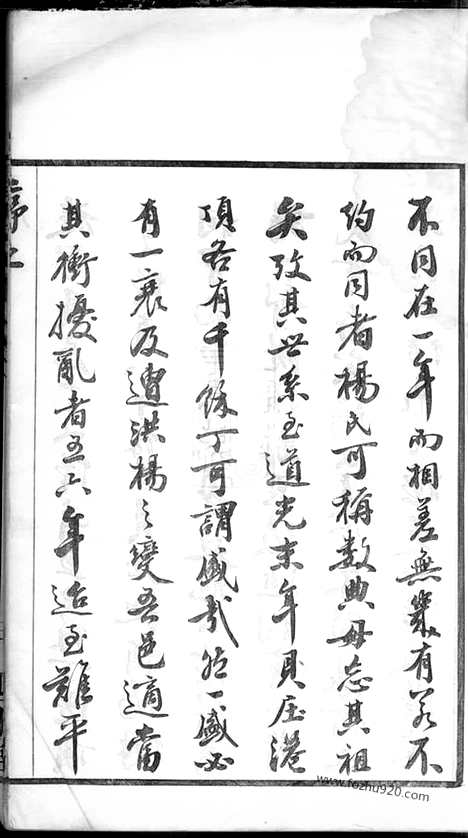 不同在一年而相差無幾有若不
約而同者楊氏可稱數典毋忘其祖
矣攷其世系至道光末年貝庄港
項各有千餘丁可謂盛哉然一盛必
有一衰及遭洪楊之變吾邑適當
其衝擾亂者五六年迨至難平
序二
www.fozhu920.com